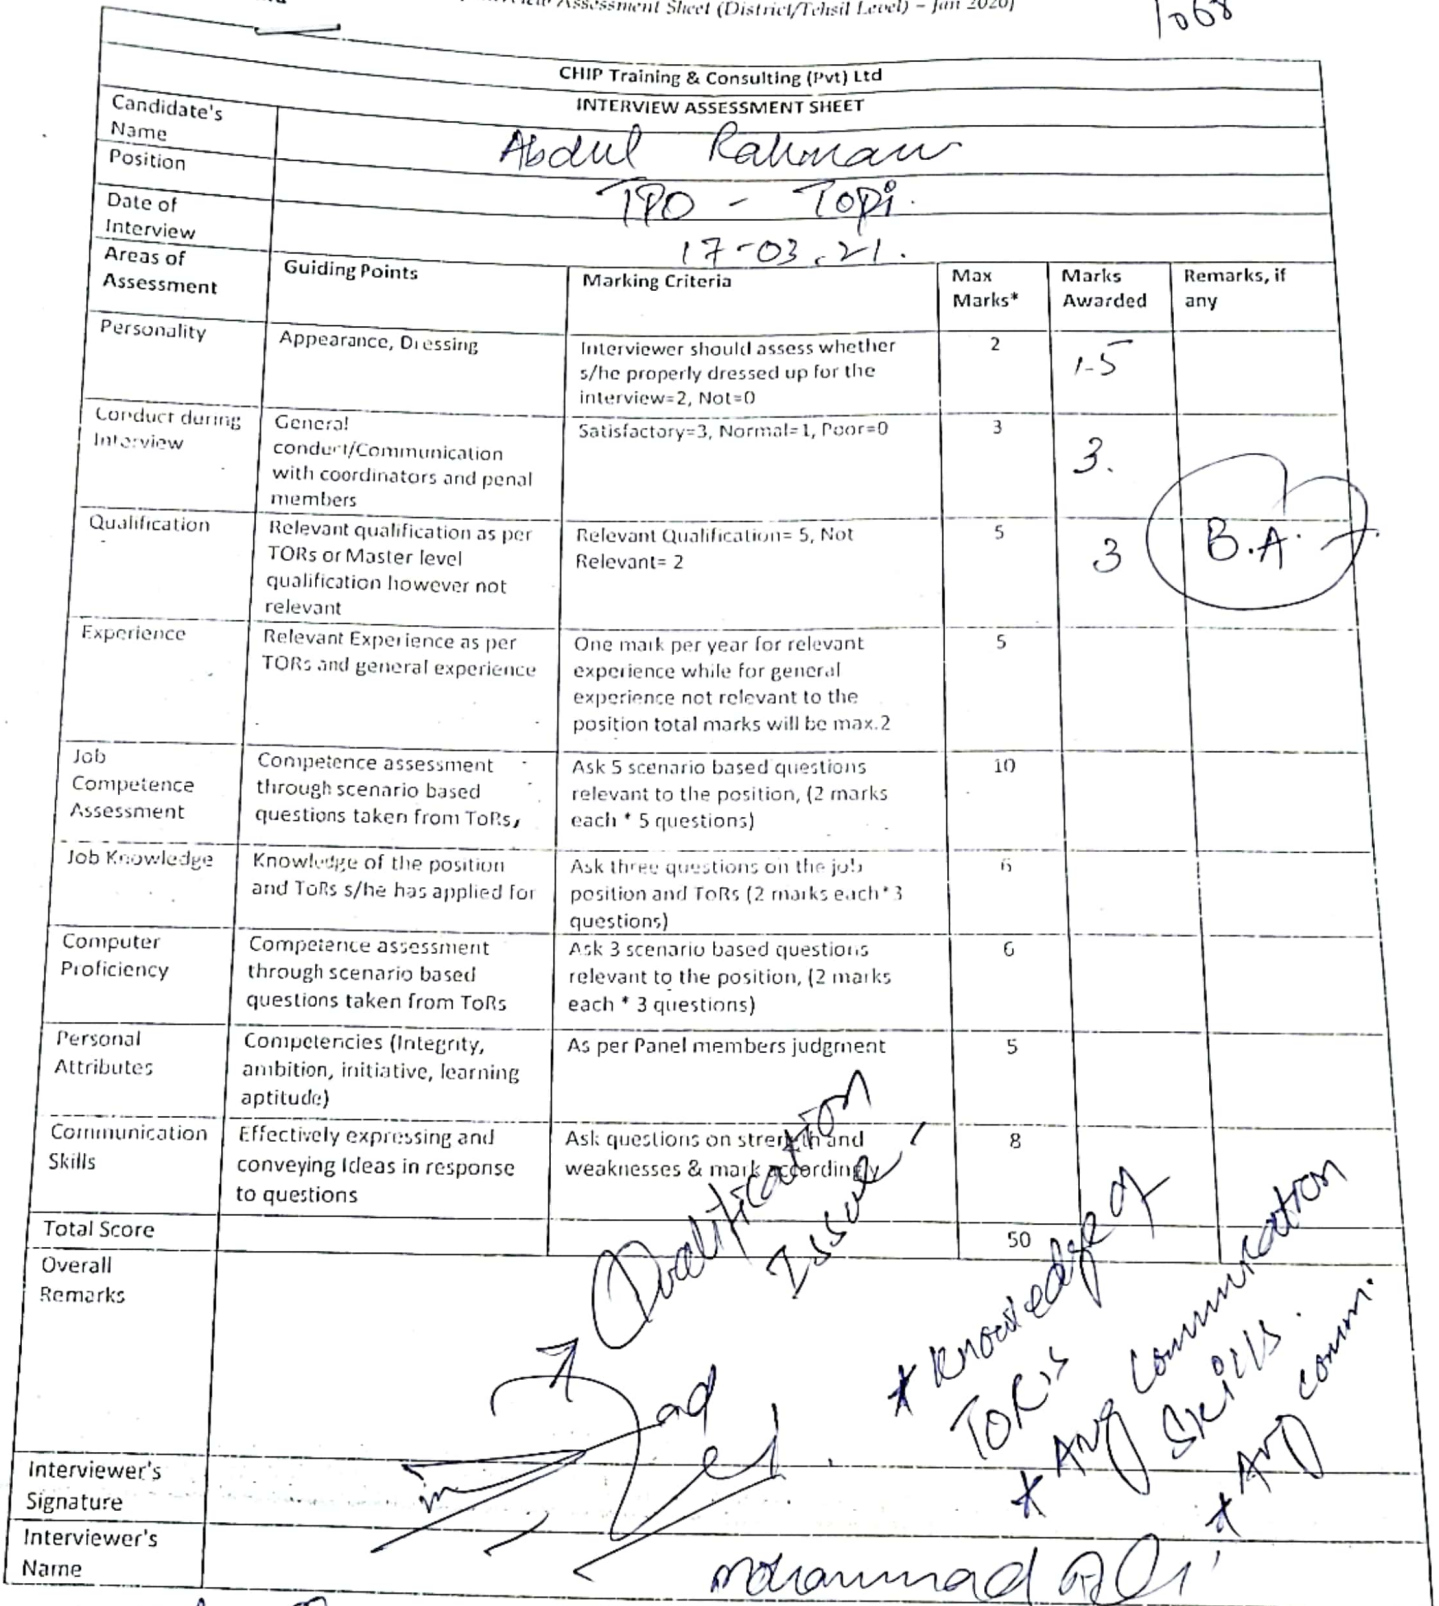 Assessment Sheet (District/Tehsil Level) – Jan 2020)
1068
CHIP Training & Consulting (Pvt) Ltd
INTERVIEW ASSESSMENT SHEET
Candidate's
Name
Abdul Rahman
Position
TPO - Topi.
Date of
Interview
17-03.21.
Areas of
Assessment
Guiding Points
Marking Criteria
Max
Marks*
Marks
Awarded
Remarks, if
any
Personality
Appearance, Dressing
Interviewer should assess whether
s/he properly dressed up for the
interview=2, Not=0
2
1.5
Conduct during
Interview
General
conduct/Communication
with coordinators and penal
members
Satisfactory=3, Normal=1, Poor=0
3
3.
Qualification
Relevant qualification as per
TORs or Master level
qualification however not
relevant
Relevant Qualification= 5, Not
Relevant= 2
5
3
B.A.
Experience
Relevant Experience as per
TORs and general experience
One mark per year for relevant
experience while for general
experience not relevant to the
position total marks will be max.2
5
Job
Competence
Assessment
Competence assessment
through scenario based
questions taken from ToRs,
Ask 5 scenario based questions
relevant to the position, (2 marks
each * 5 questions)
10
Job Knowledge
Knowledge of the position
and ToRs s/he has applied for
Ask three questions on the job
position and ToRs (2 marks each*3
questions)
6
Computer
Proficiency
Competence assessment
through scenario based
questions taken from ToRs
Ask 3 scenario based questions
relevant to the position, (2 marks
each * 3 questions)
6
Personal
Attributes
Competencies (Integrity,
ambition, initiative, learning
aptitude)
As per Panel members judgment
5
Communication
Skills
Effectively expressing and
conveying Ideas in response
to questions
Ask questions on strength and
weaknesses & mark accordingly
8
Total Score
50
Overall
Remarks
→ Qualification
Issue -
* Knowledge of
TOR's
* Avg Communication
Skills.
* Avg comm.
Interviewer's
Signature
Interviewer's
Name
Mohammad Ali